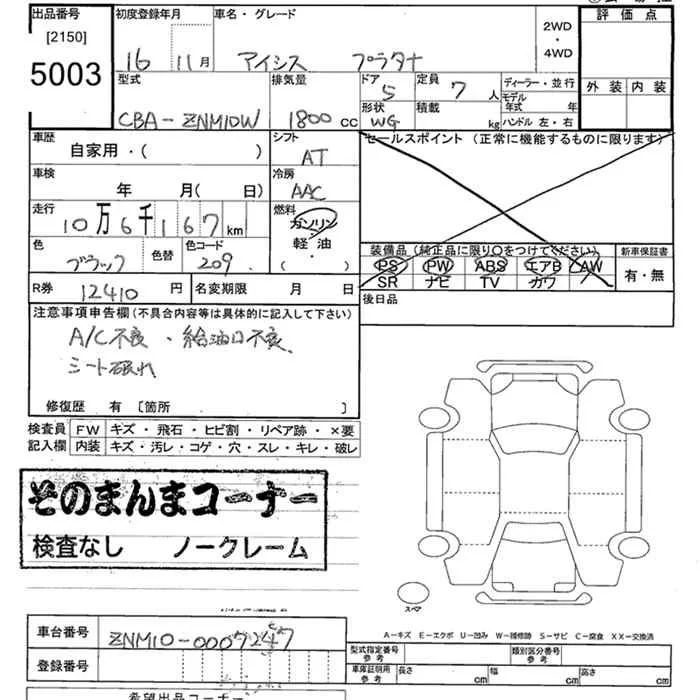 出品番号 初度登録年月 車名・グレード 評価点
[2150]
5003
16 11月 アイシス プラタナ
2WD
・
4WD
外装 内装
型式 排気量 ドア 定員 ディーラー・並行
CBA-ZNM10W 1800cc 5 7人
モデル年式 年
形状 積載
WG kg ハンドル 左・右
車歴 シフト セールスポイント (正常に機能するものに限ります)
自家用・( ) AT
車検 冷房
年 月( 日) AAC
走行 燃料
10万6千167km ガソリン・軽油
( )
色 色替 色コード
ブラック 209
装備品(純正品に限り○をつけてください) 新車保証書
PS PW ABS エアB AW 有・無
SR ナビ TV カワ
R券 12410円 名変期限 月 日
後日品
注意事項申告欄(不具合内容等は具体的に記入して下さい)
A/C不良・給油口不良
シート破れ
修復歴 有 [箇所 ]
検査員記入欄 FW キズ・飛石・ヒビ割・リペア跡・×要
内装 キズ・汚レ・コゲ・穴・スレ・キレ・破レ
そのまんまコーナー
検査なし ノークレーム
スペア
A−キズ E−エクボ U−凹み W−補修跡 S−サビ C−腐食 XX−交換済
車台番号 ZNM10-0007247
登録番号
型式指定番号 参考 類別区分番号 参考
車庫証明用 参考 長さ cm 幅 cm 高さ cm
希望出品コーナー